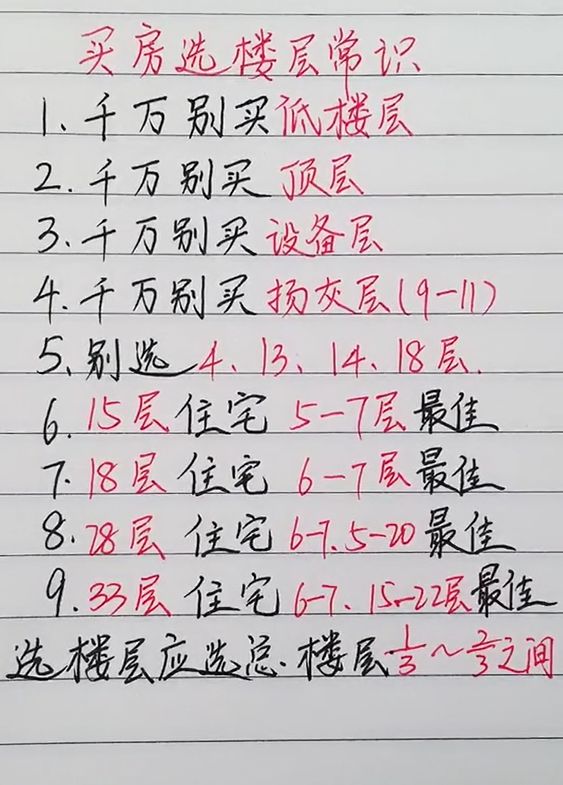 买房选楼层常识
1.千万别买低楼层
2.千万别买顶层
3.千万别买设备层
4.千万别买扬灰层(9-11)
5、别选4、13、14、18层.
6.15层住宅5-7层最佳
7.18层住宅6-7层最佳
8.28层住宅6-7.5-20最佳
9.33层住宅6-7、15-22层最佳
选楼层应选总.楼层1/3~2/3之间